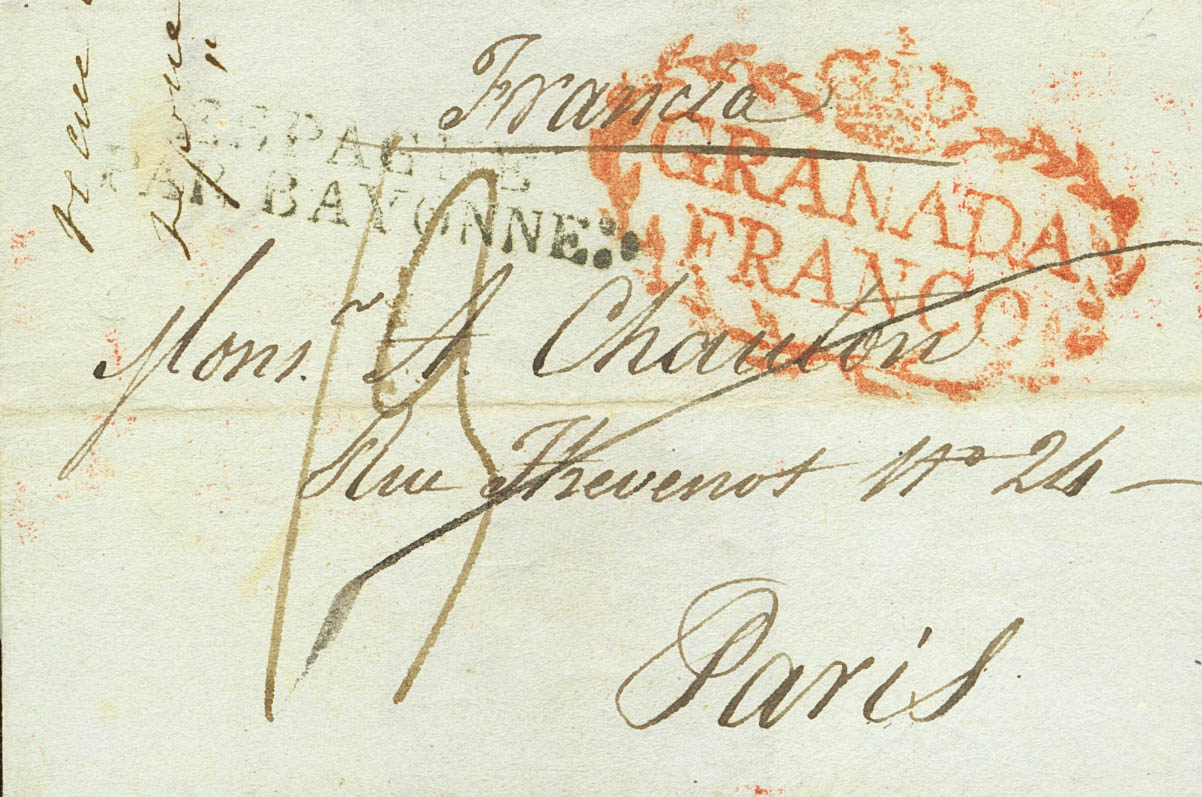 Francia
ESPAGNE
PAR BAYONNE
GRANADA
FRANCO
Mons.r A. Chauton
Rue Thevenot Nº 24
Paris